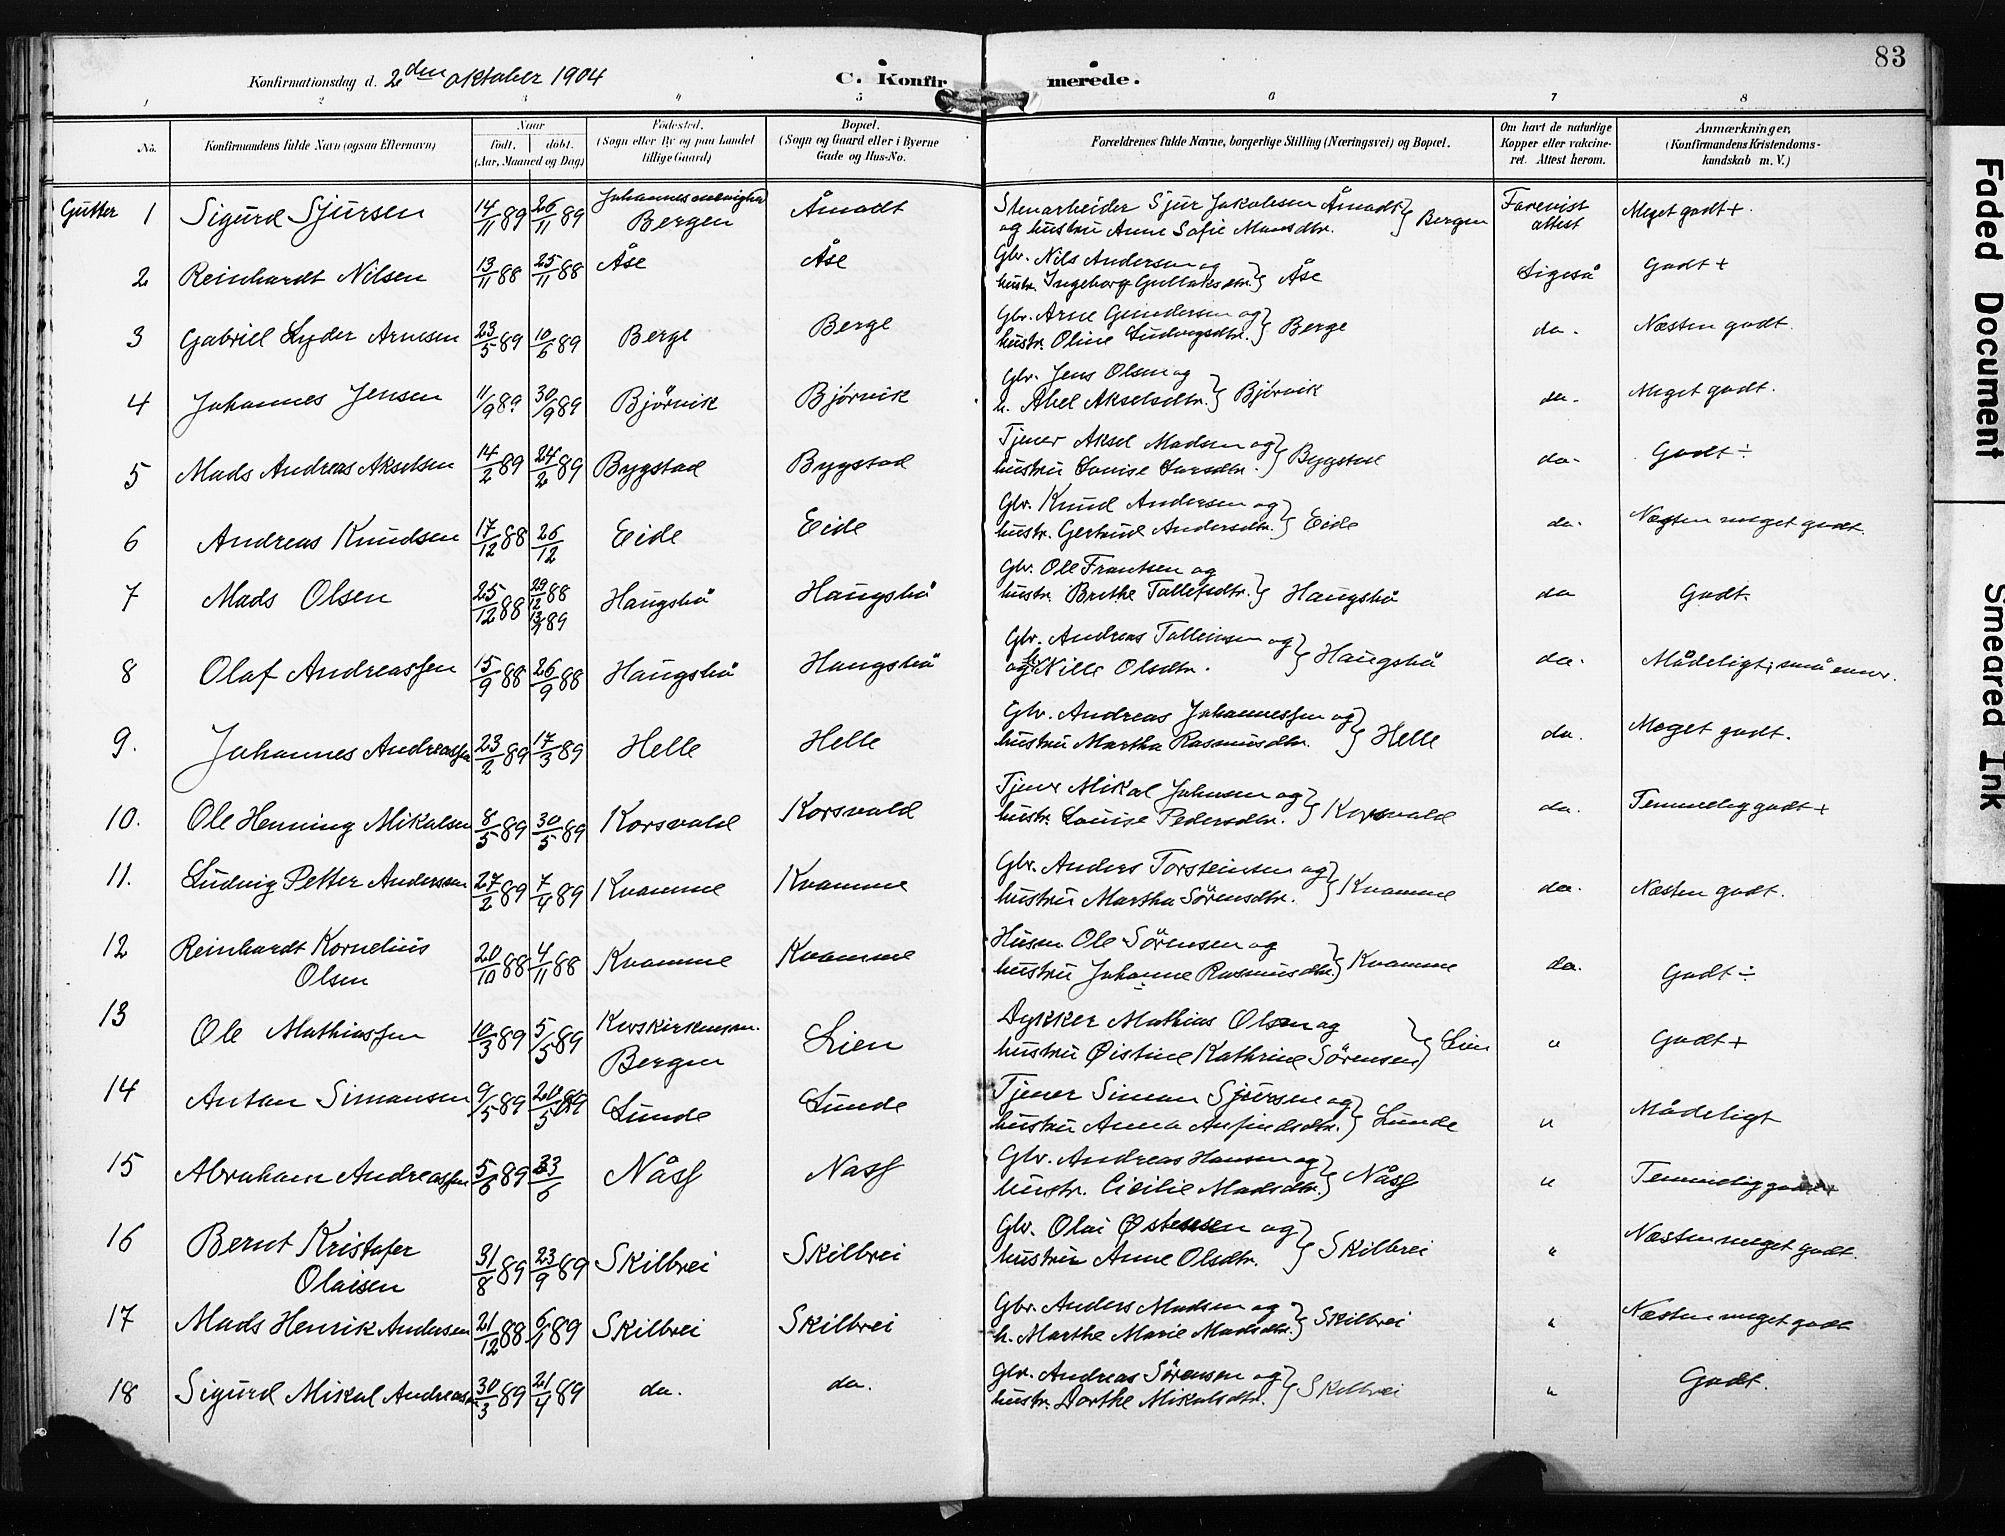 83
Konfirmationsdag d. 2den oktober 1904
C. Konfirmerede.
1 2 3 4 5 6 7 8
No.
Konfirmandens fulde Navn (ogsaa Efternavn)
Naar
født. døbt.
(Aar, Maaned og Dag)
Fødested.
(Sogn eller By og paa Landet
tillige Gaard)
Bopæl.
(Sogn og Gaard eller i Byerne
Gade og Hus-No.
Forældrenes fulde Navne, borgerlige Stilling (Næringsvei) og Bopæl.
Om havt de naturlige
Kopper eller vakcine-
ret. Attest herom.
Anmærkninger,
(Konfirmandens Kristendoms-
kundskab m. V.)
Gutter 1 Sigurd Sjursen 14/11 89 26/11 89 Bergen Åmodt
Stenarbeider Sjur Jakobsen Åmodt
og hustru Anne Sofie Monsdtr. } Bergen Forevist attest Meget godt +
2 Reinhardt Nilsen 13/11 88 25/11 88 Åse Åse
Gbr. Nils Andersen og
hustr. Ingeborg Gullaksdtr. } Åse Ligeså Godt +
3 Gabriel Lyder Arnesen 23/5 89 10/6 89 Berge Berge
Gbr. Arne Gundersen og
hustr. Oline Ludvigsdtr. } Berge do. Næsten godt.
4 Johannes Jensen 11/9 89 30/9 89 Bjørvik Bjørvik
Gbr. Jens Olsen og
h. Abel Akselsdtr. } Bjørvik do. Meget godt.
5 Mads Andreas Akselsen 14/2 89 24/2 89 Bygstad Bygstad
Tjener Aksel Madsen og
hustru Louise Larsdtr. } Bygstad do. Godt ÷
6 Andreas Knudsen 17/12 88 26/12 Eide Eide
Gbr. Knud Andersen og
hustr. Gertrud Andersdtr. } Eide do. Næsten meget godt.
7 Mads Olsen 25/12 88 29/12 88 89 Haugsbö Haugsbö
Gbr. Ole Frantsen og
hustr. Brithe Tollefsdtr. } Haugsbö do Godt.
8 Olaf Andreassen 15/9 88 26/9 88 Haugsbö Haugsbö
Gbr. Andreas Tolleivsen og
og Nille Olsdtr. } Haugsbö do. Mådeligt; små evner.
9. Johannes Andreassen 23/2 89 17/3 89 Helle Helle
Gbr. Andreas Johannessen og
hustru Martha Rasmusdtr. } Helle do. Meget godt.
10. Ole Henning Mikalsen 8/5 89 30/5 89 Korsvold Korsvold
Tjener Mikal Johnsen og
hustr. Louise Pedersdtr. } Korsvold do. Temmelig godt +
11. Ludvig Petter Andersen 27/2 89 7/4 89 Kvamme Kvamme
Gbr. Anders Torsteinsen og
hustru Martha Sörensdtr. } Kvamme do. Næsten godt.
12 Reinhardt Kornelius
Olsen 20/10 88 4/11 88 Kvamme Kvamme
Husm Ole Sörensen og
hustru Johanne Rasmusdtr. } Kvamme do. Godt ÷
13 Ole Mathiassen 10/3 89 5/5 89 Korskirkens
Bergen Lien
Dykker Mathias Olsen og
hustru Øistine Kathrine Sörensen } Lien " Godt +
14 Anton Simonsen 9/5 89 20/5 89 Lunde Lunde
Tjener Simon Sjursen og
hustru Anna Anfindsdtr. } Lunde " Mådeligt
15 Abraham Andreassen 5/6 89 23/6 Nåss Nass
Gbr. Andreas Hansen og
hustr. Cicilie Madsdtr. } Nåss " Temmelig godt +
16 Bernt Kristofer
Olaisen 31/8 89 23/9 89 Skilbrei Skilbrei
Gbr. Olai Østensen og
hustru Anne Olsdtr. } Skilbrei " Næsten meget godt.
17 Mads Henrik Andersen 21/12 88 6/1 89 Skilbrei Skilbrei
Gbr. Anders Madsen og
h. Marthe Marie Madsdtr. } Skilbrei " Næsten meget godt
18 Sigurd Mikal Andreassen 30/3 89 21/4 89 do. do.
Gbr. Andreas Sörensen og
hustr. Dorthe Mikalsdtr. } Skilbrei " Godt.
Faded Document
Smeared Ink